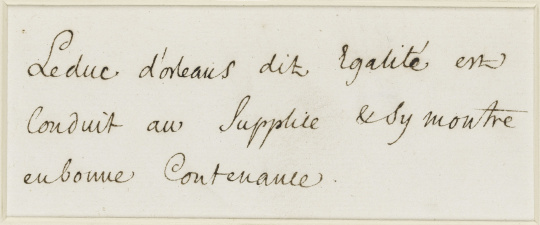 Leduc d'orleans dit Egalité est
Conduit au Supplice & Sy montre
en bonne Contenance.